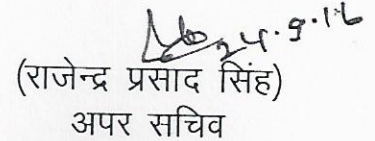 24.9.16
(राजेन्द्र प्रसाद सिंह)
अपर सचिव